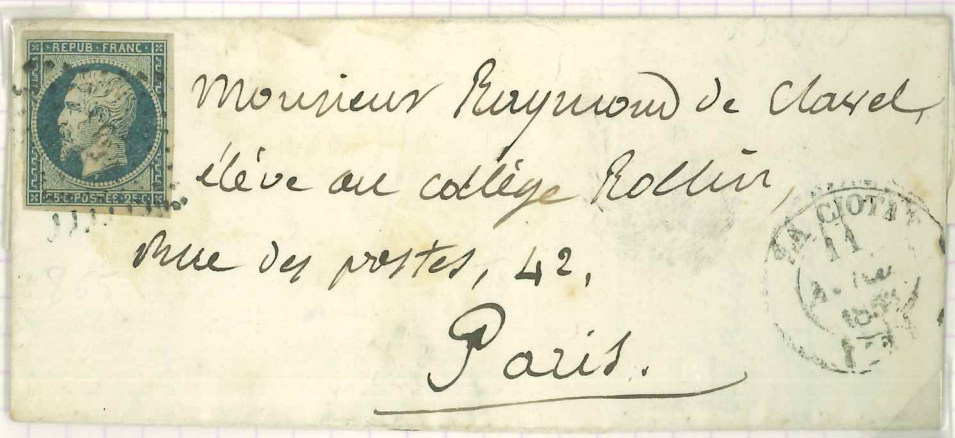 REPUB·FRANC·
25c·POSTES·25c·
Monsieur Raymond de Clavel,
élève au collège Rollin,
Rue des postes, 42.
Paris.
LA CIOTAT
11